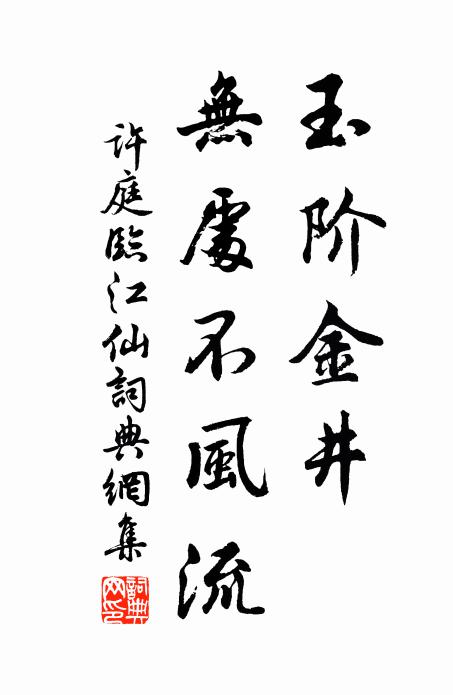 玉阶金井
無處不風流
許庭臨江仙詞典網集
詞典網印